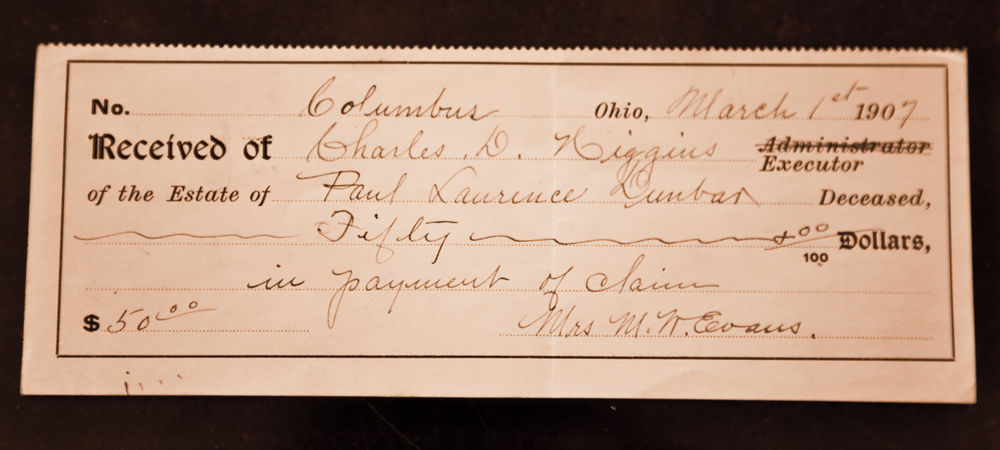 No. Columbus Ohio, March 1st 1907
Received of Charles. D. Higgins Administrator
Executor
of the Estate of Paul Laurence Dunbar Deceased,
Fifty & 00/100 Dollars,
in payment of claim
$ 50 00 Mrs M. W. Evans.